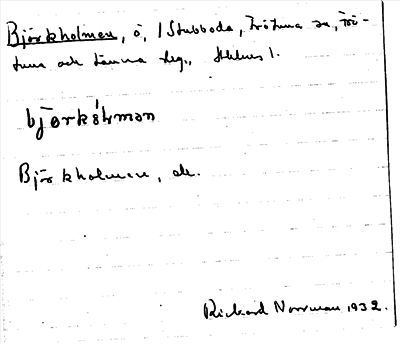 Björkholmen, ö, i Stubboda, Frötuna sn, Frö-
tuna och Länna skg., Sthlms l.
bjørkó̩lmən
Björkholmen, de.
Rickard Norrman 1932.